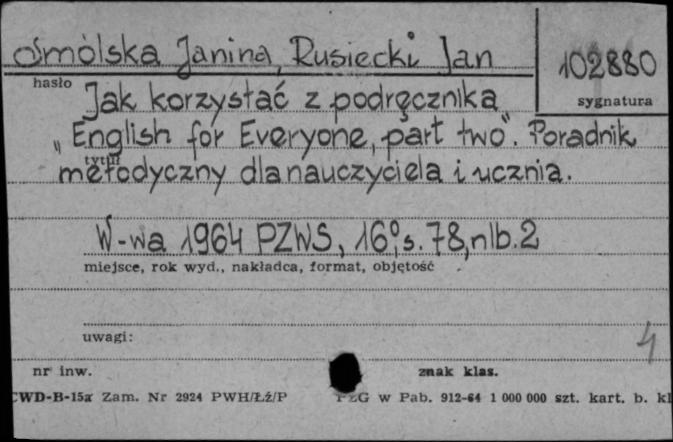 Smólska Janina, Rusiecki Jan
102880
hasło
sygnatura
Jak korzystać z podręcznika
„English for Everyone, part two". Poradnik
tytuł
metodyczny dla nauczyciela i ucznia.
W-wa 1964 PZWS, 16°, s. 78, nlb. 2
miejsce, rok wyd., nakładca, format, objętość
uwagi:
4
nr inw.
znak klas.
CWD-B-15a Zam. Nr 2924 PWH/Łź/P
PZG w Pab. 912-64 1 000 000 szt. kart. b. kl